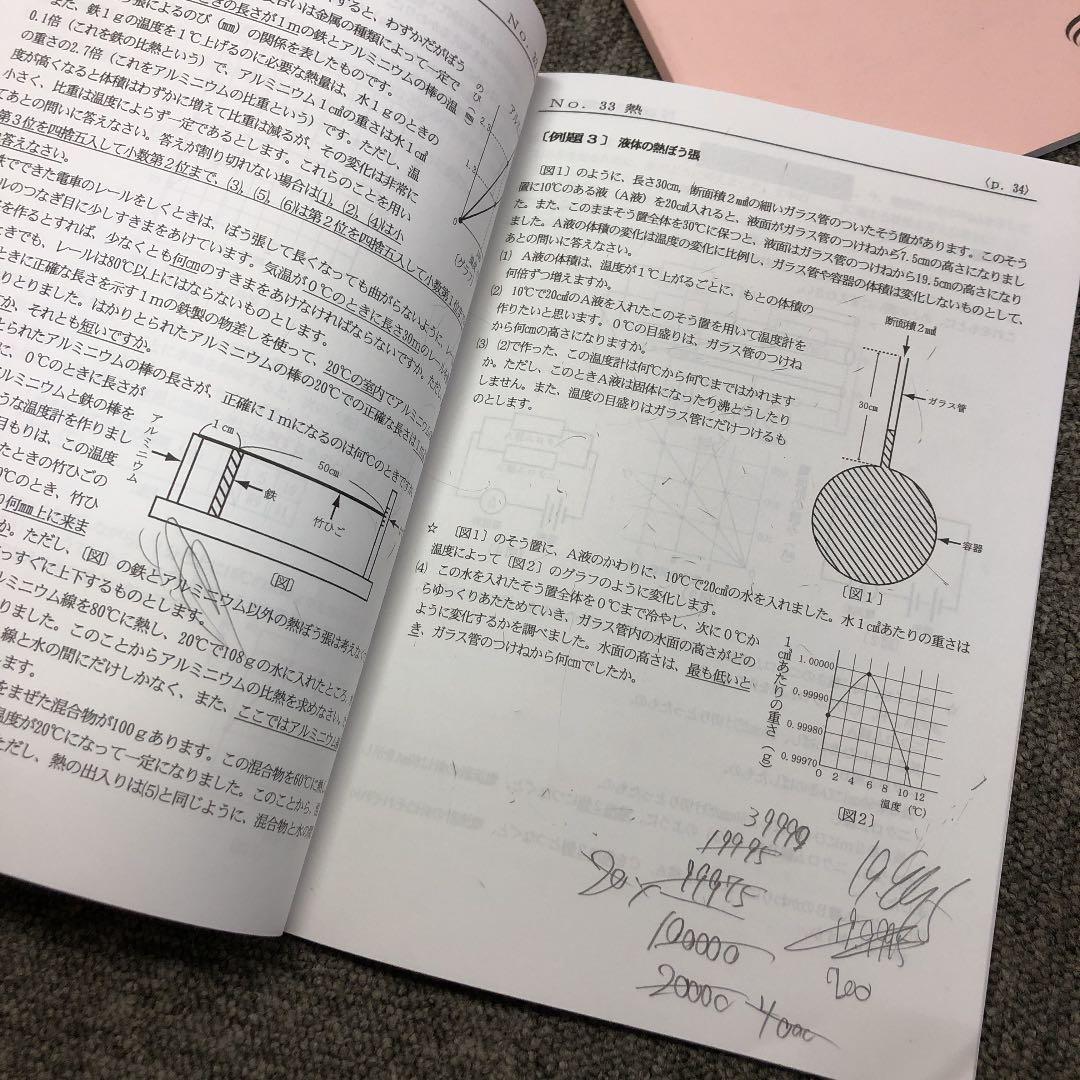 と、わずかだがぼう
合いは金属の種類によって一定で
きの長さが1mの鉄とアルミニウムの棒の温
張によるのび（㎜）の関係を表したものです。
また、鉄1gの温度を1℃上げるのに必要な熱量は、水1gのときの
0.1倍（これを鉄の比熱という）で、アルミニウム1㎤の重さは水1㎤
の重さの2.7倍（これをアルミニウムの比重という）です。ただし、温
度が高くなると体積はわずかに増えて比重は減るが、その変化は非常に
小さく、比重は温度によらず一定であるとします。これらのことを用い
てあとの問いに答えなさい。答えが割り切れない場合は(1)、(2)、(4)は小
第3位を四捨五入して小数第2位まで、(3)、(5)、(6)は第2位を四捨五入して小数第1位まで
答えなさい。
鉄でできた電車のレールをしくときは、ぼう張して長くなっても曲がらないように、レー
ルのつなぎ目に少しすきまをあけています。気温が0℃のときに長さ30mのレール
を作るとすれば、少なくとも何㎝のすきまをあけなければならないですか。ただ
ときでも、レールは80℃以上にはならないものとします。
きに正確な長さを示す1mの鉄製の物差しを使って、20℃の室内でアルミニウム
りとりました。はかりとられたアルミニウムの棒の20℃での正確な長さは1m
か、それとも短いですか。
られたアルミニウムの棒の長さが、正確に1mになるのは何℃のときですか
に、0℃のときに長さが
ルミニウムと鉄の棒を
うな温度計を作りまし
目もりは、この温度
たときの竹ひごの
0℃のとき、竹ひ
り何㎜上に来ま
か。ただし、〔図〕の鉄とアルミニウム以外の熱ぼう張は考えなく
っすぐに上下するものとします。
ルミニウム線を80℃に熱し、20℃で108gの水に入れたところ、
りました。このことからアルミニウムの比熱を求めなさい。
線と水の間にだけしかなく、また、ここではアルミニウム
ます。
をまぜた混合物が100gあります。この混合物を60℃に熱し
温度が20℃になって一定になりました。このことから、
ただし、熱の出入りは(5)と同じように、混合物と水の間
のび
アル
2.3
1.3
〔グラフ〕
アルミニウム
1㎝
50㎝
鉄
竹ひご
〔図〕
No. 33 熱
(p. 34)
〔例題3〕 液体の熱ぼう張
〔図1〕のように、長さ30㎝、断面積2㎟の細いガラス管のついたそう置があります。このそう
置に10℃のある液（A液）を20㎤入れると、液面がガラス管のつけねから7.5㎝の高さになりまし
た。また、このままそう置全体を30℃に保つと、液面はガラス管のつけねから19.5㎝の高さになり
ました。A液の体積の変化は温度の変化に比例し、ガラス管や容器の体積は変化しないものとして、
あとの問いに答えなさい。
(1) A液の体積は、温度が1℃上がるごとに、もとの体積の
何倍ずつ増えますか。
(2) 10℃で20㎤のA液を入れたこのそう置を用いて温度計を
作りたいと思います。0℃の目盛りは、ガラス管のつけね
から何㎝の高さになりますか。
(3) (2)で作った、この温度計は何℃から何℃まではかれます
か。ただし、このときA液は固体になったり沸とうしたり
しません。また、温度の目盛りはガラス管にだけつけるも
のとします。
断面積2㎟
30㎝
ガラス管
容器
〔図1〕
☆ 〔図1〕のそう置に、A液のかわりに、10℃で20㎤の水を入れました。水1㎤あたりの重さは
温度によって〔図2〕のグラフのように変化します。
(4) この水を入れたそう置全体を0℃まで冷やし、次に0℃か
らゆっくりあたためていき、ガラス管内の水面の高さがどの
ように変化するかを調べました。水面の高さは、最も低いと
き、ガラス管のつけねから何㎝でしたか。
1㎤あたりの重さ（g）
1.00000
0.99990
0.99980
0.99970
0 2 4 6 8 10 12
温度（℃）
〔図2〕
39999
19995
19975
100000
20000
4000
200